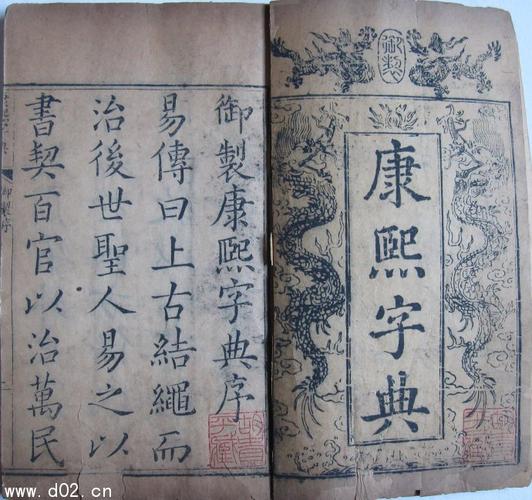 御製
康熙字典
御製康熙字典序
易傳曰上古結繩而
治後世聖人易之以
書契百官以治萬民
御製序
www.d02.cn